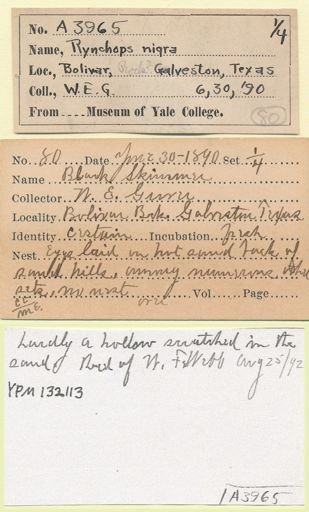 No. A 3965 1/4
Name, Rynchops nigra
Loc., Bolivar, Galveston, Texas
Coll., W.E.G. 6, 30, '90
From .... Museum of Yale College. 80
No. 80 Date June 30-1890 Set 1/4
Name Black Skimmer
Collector W. E. Grover
Locality Bolivar Galveston Texas
Identity Certain Incubation fresh
Nest. Eggs laid in hot sand back of
sand hills, among numerous other
sets, no nest Vol Page
hardly a hollow scratched in the
sand Recd of W. F. Webb Aug 25/92
YPM 132113
A3965